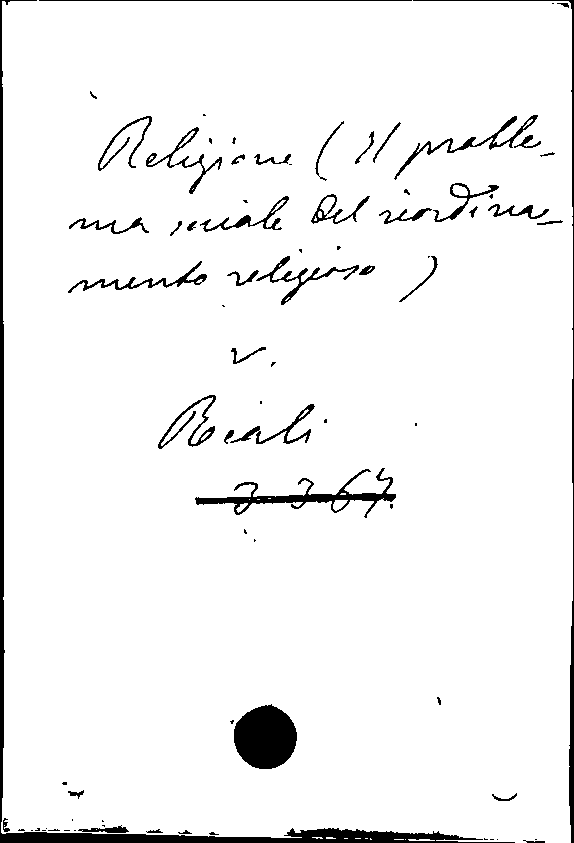 Religione (Il proble-
ma sociale del riordina-
mento religioso)
v.
Reali
3367.